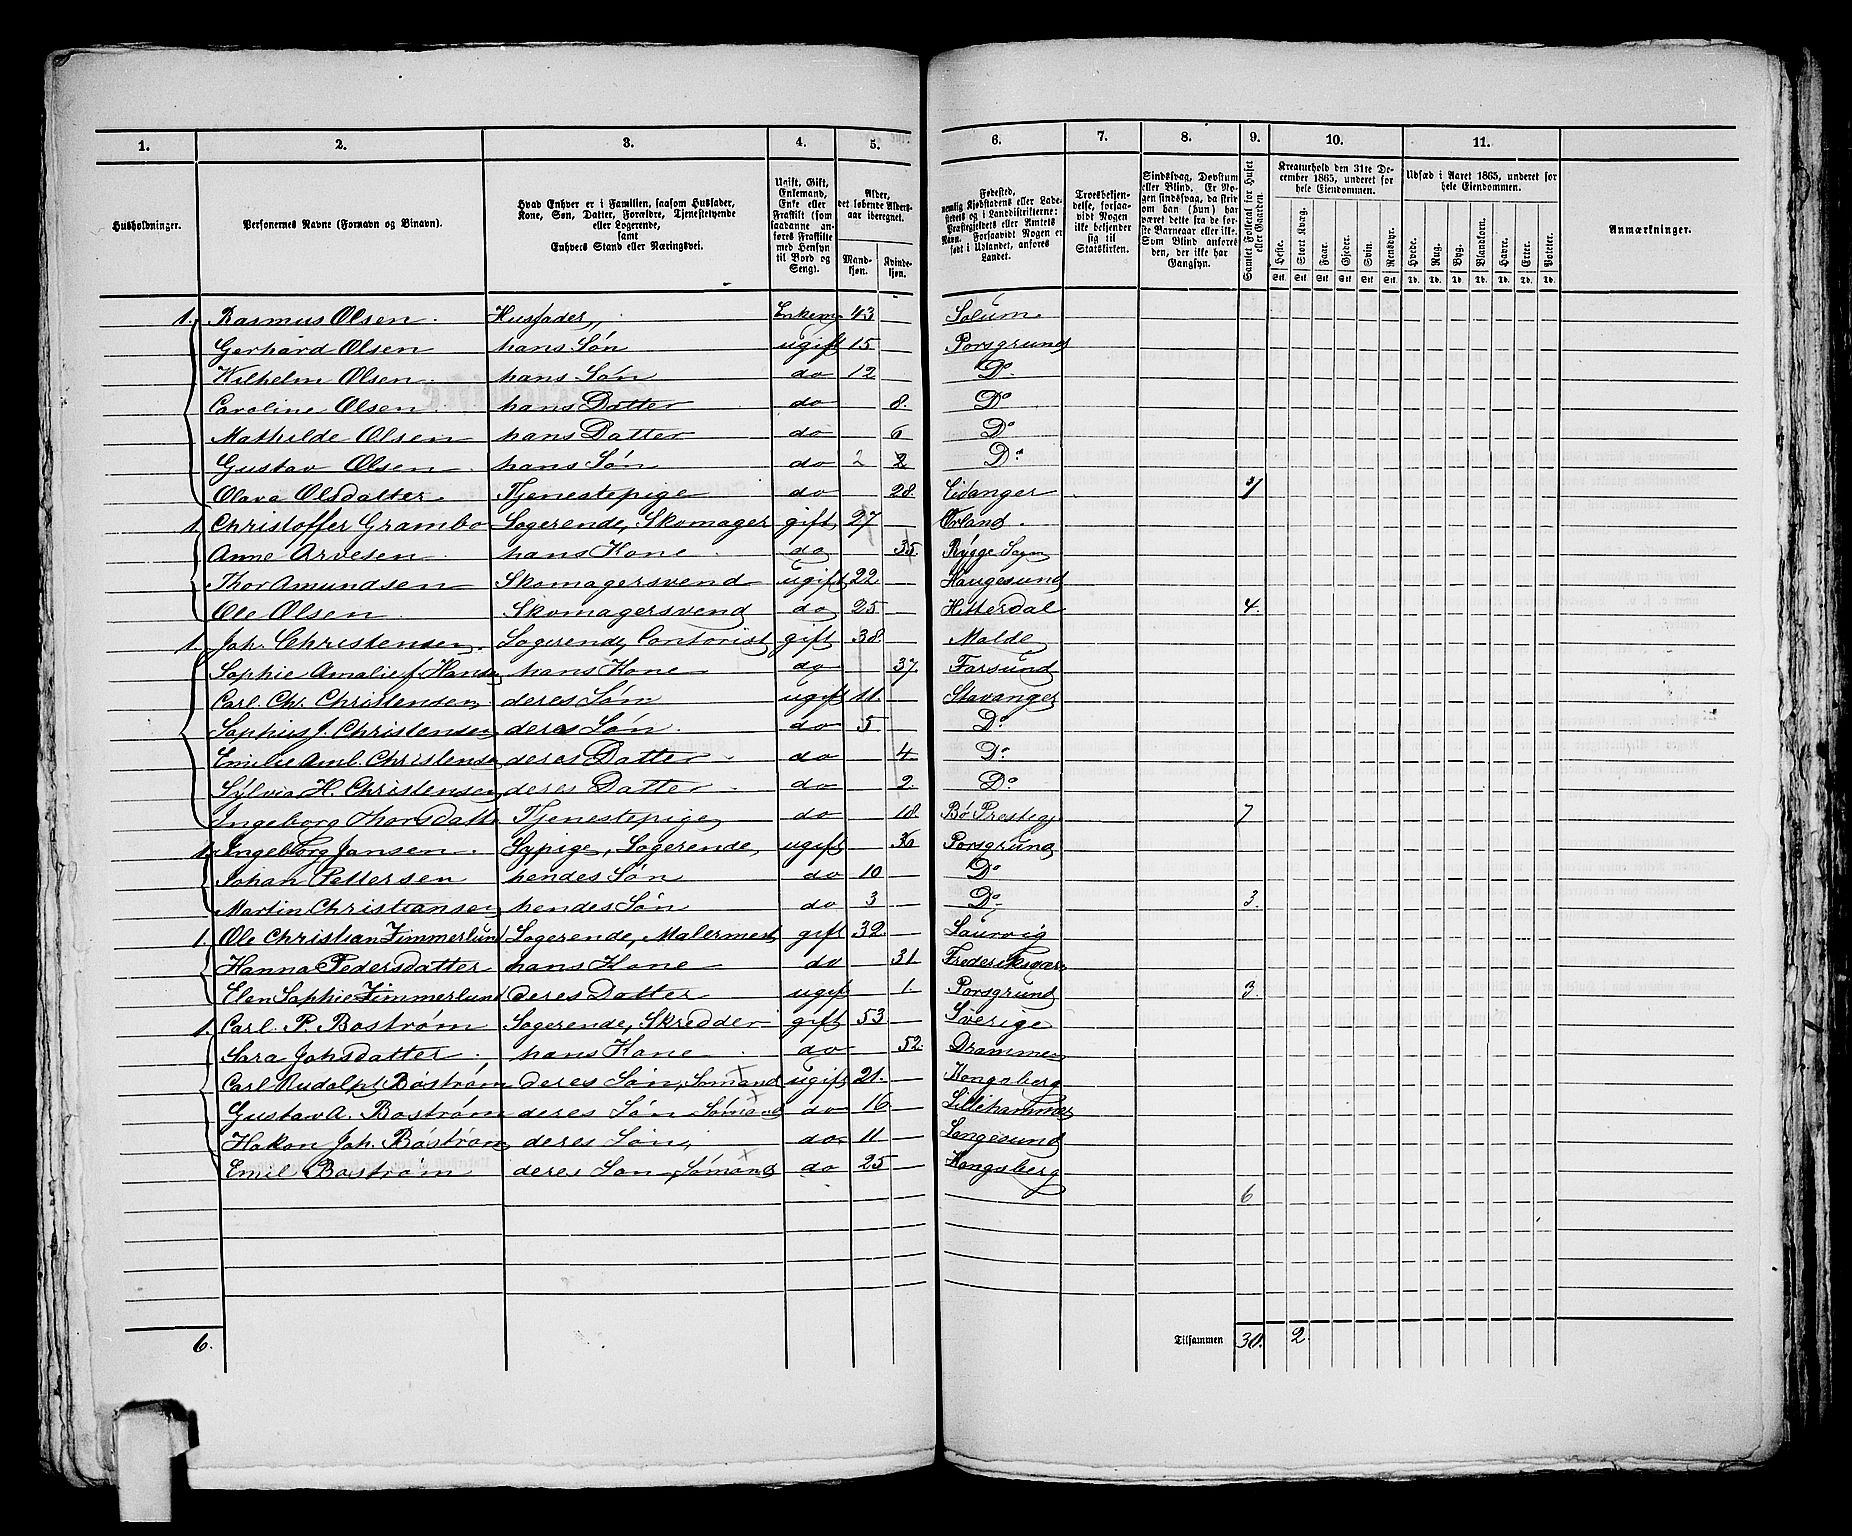 1. 2. 3. 4. 5. 6. 7. 8. 9. 10. 11.
Husholdninger.
Personernes Navne (Fornavn og Binavn).
Hvad Enhver er i Familien, saasom Husfader,
Kone, Søn, Datter, Forældre, Tjenestetyende
eller Logerende,
samt
Enhvers Stand eller Næringsvei.
Ugift, Gift,
Enkemand,
Enke eller
Fraskilt (som
saadanne an-
føres Fraskilte
med Hensyn
til Bord og
Seng).
Alder,
det løbende Alders-
aar iberegnet.
Mand-
kjøn.
Kvinde-
kjøn.
Fødested,
nemlig Kjøbstadens eller Lade-
stedets og i Landdistrikterne:
Præstegjeldets eller Amtets
Navn. Forsaavidt Nogen er
født i Udlandet, anføres
Landet.
Troesbekjen-
delse, forsaa-
vidt Nogen
ikke bekjender
sig til
Statskirken.
Sindssvag, Døvstum
eller Blind. Er No-
gen sindssvag, da skriv
om han (hun) har
været dette fra de før-
ste Barneaar eller ikke.
Som Blind anføres
den, der ikke har
Gangsyn.
Samlet Folketal for Huset
eller Gaarden.
Kreaturhold den 31te De-
cember 1865, underet for
hele Eiendommen.
Heste. Stort Kvæg. Faar. Gjeder. Svin. Rensdyr.
Stk. Stk. Stk. Stk. Stk. Stk.
Udsæd i Aaret 1865, underet for
hele Eiendommen.
Hvede. Rug. Byg. Blandkorn. Havre. Erter. Poteter.
Td. Td. Td. Td. Td. Td. Td.
Anmærkninger.
1. Rasmus Olsen. Husfader, Enkem 43 Solum.
Gerhard Olsen hans Søn ugift 15 Porsgrund
Wilhelm Olsen. hans Søn do 12 Do
Caroline Olsen. hans Datter do 8. Do
Mathilde Olsen hans Datter do 6 Do
Gustav Olsen. hans Søn do 2 2 Do
Olava Olsdatter. Tjenestepige do 28. Eidanger 7
1 Christoffer Grambo Logerende, Skomager gift 27 Ørland.
Anne Arvesen. hans Kone. do 35. Rygge Sogn
Thor Amundsen Skomagersvend ugift 22 Haugesund
Ole Olsen. Skomagersvend do 25 Hitterdal 4.
1. Joh. Christensen. Logerende, Contorist gift 38. Molde
Sophie Amalie f. Hansen hans Kone do 37. Farsund
Carl. Chr. Christensen deres Søn ugift 11. Stavanger
Sophus J. Christensen deres Søn. do 5 Do
Emilie Aml. Christense deres Datter do 4. Do
Sylvia H. Christensen deres Datter do 2. Do
Ingeborg Thorsdatte Tjenestepige do 18. Bø Prestegj 7
1. Ingeborg Jansen. Sypige, Logerende, ugift Porsgrund
Johan Pettersen hendes Søn do 10 Do
Martin Christiansen hendes Søn do 3 Do 3.
1. Ole Christian Zimmerlund Logerende, Malermest gift 32. Laurvig
Hanna Pedersdatter hans Kone do 31. Frederiksværn
Elen Sophie Zimmerlund deres Datter ugift 1. Porsgrund 3.
1. Carl. P. Bostrøm Logerende, Skredder gift 53 Sverige
Sara Johsdatter hans Kone do 52. Drammen
Carl Rudolph Bostrøm deres Søn, Sømand ugift 21. Kongsberg
Gustav A. Bostrøm deres Søn Sømand do 16 Lillehammer
Hakon Joh. Bostrøm deres Søn, do 11 Langesund
Emil Bostrøm deres Søn, Sømand do 25 Kongsberg
6
6. Tilsammen 30. 2.